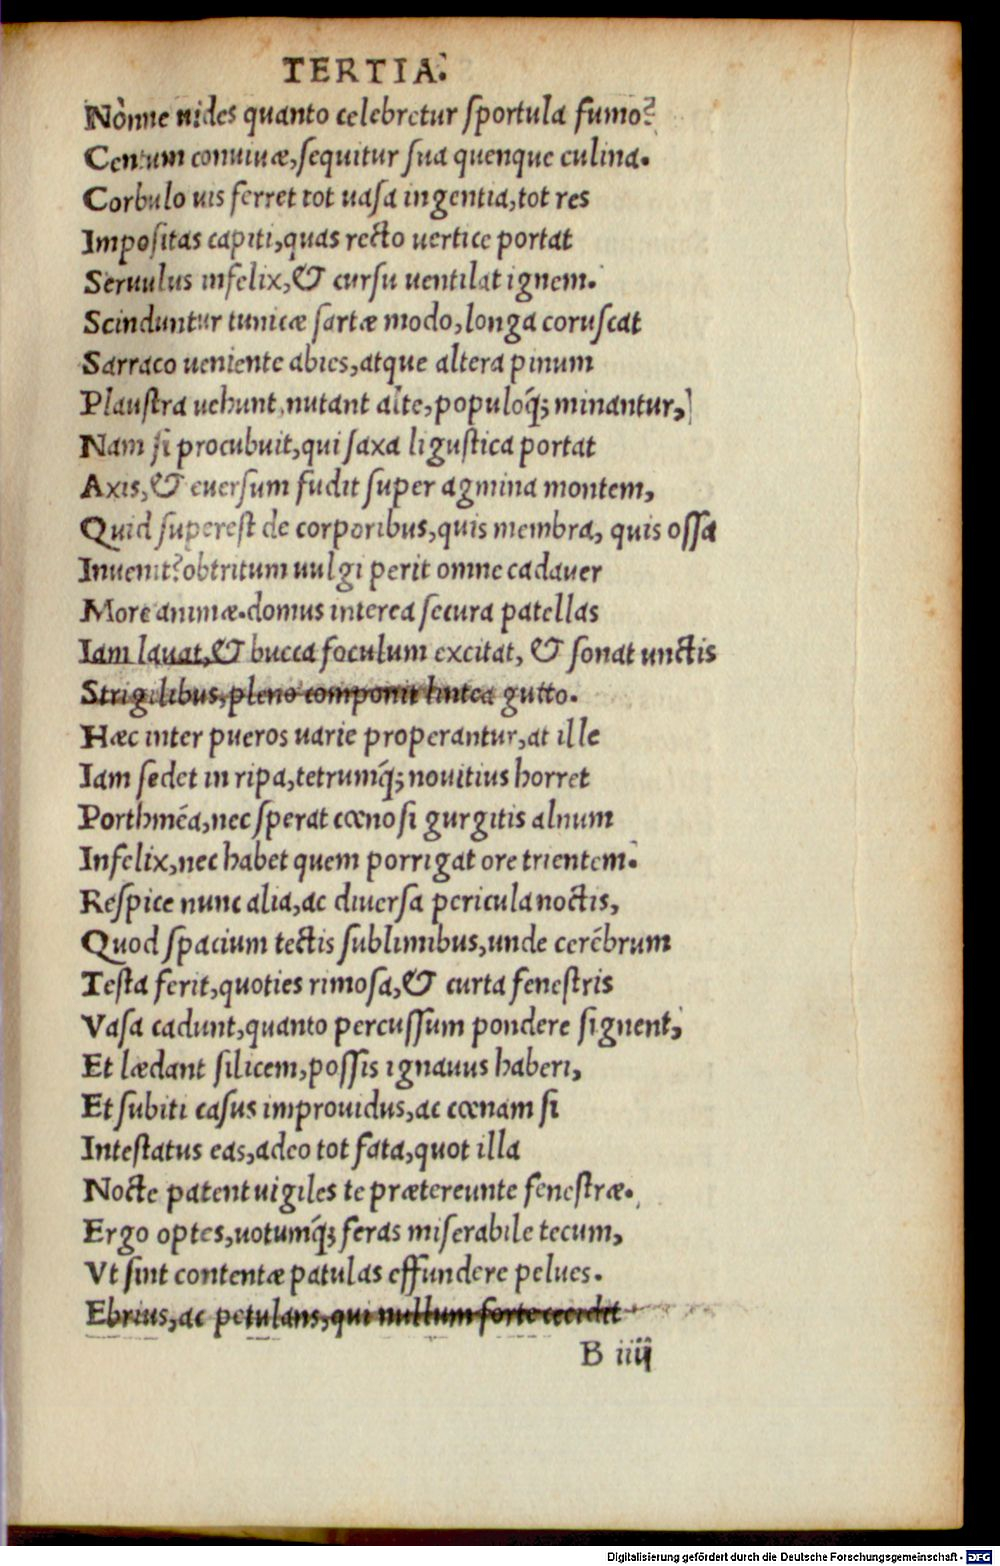 TERTIA.
Nònne uides quanto celebretur sportula fumo?
Centum conuiuæ, sequitur sua quenque culina.
Corbulo uis ferret tot uasa ingentia, tot res
Impositas capiti, quas recto uertice portat
Seruulus infelix, & cursu uentilat ignem.
Scinduntur tunicæ sartæ modo, longa coruscat
Sarraco ueniente abies, atque altera pinum
Plaustra uehunt, nutant alte, populoq; minantur,
Nam si procubuit, qui saxa ligustica portat
Axis, & euersum fudit super agmina montem,
Quid superest de corporibus, quis membra, quis ossa
Inuenit? obtritum uulgi perit omne cadauer
More animæ. domus interea secura patellas
Iam lauat, & bucca foculum excitat, & sonat unctis
Strigilibus, pleno componit lintea gutto.
Hæc inter pueros uarie properantur, at ille
Iam sedet in ripa, tetrumq́; nouitius horret
Porthmēa, nec sperat cœnosi gurgitis alnum
Infelix, nec habet quem porrigat ore trientem.
Respice nunc alia, ac diuersa pericula noctis,
Quod spacium tectis sublimibus, unde cerēbrum
Testa ferit, quoties rimosa, & curta fenestris
Vasa cadunt, quanto percussum pondere signent,
Et lædant silicem, possis ignauus haberi,
Et subiti casus improuidus, ac cœnam si
Intestatus eas, adeo tot fata, quot illa
Nocte patent uigiles te prætereunte fenestræ.
Ergo optes, uotumq́; feras miserabile tecum,
Vt sint contentæ patulas effundere pelues.
Ebrius, ac petulans, qui nullum forte cecidit
B iiij
Digitalisierung gefördert durch die Deutsche Forschungsgemeinschaft - DFG